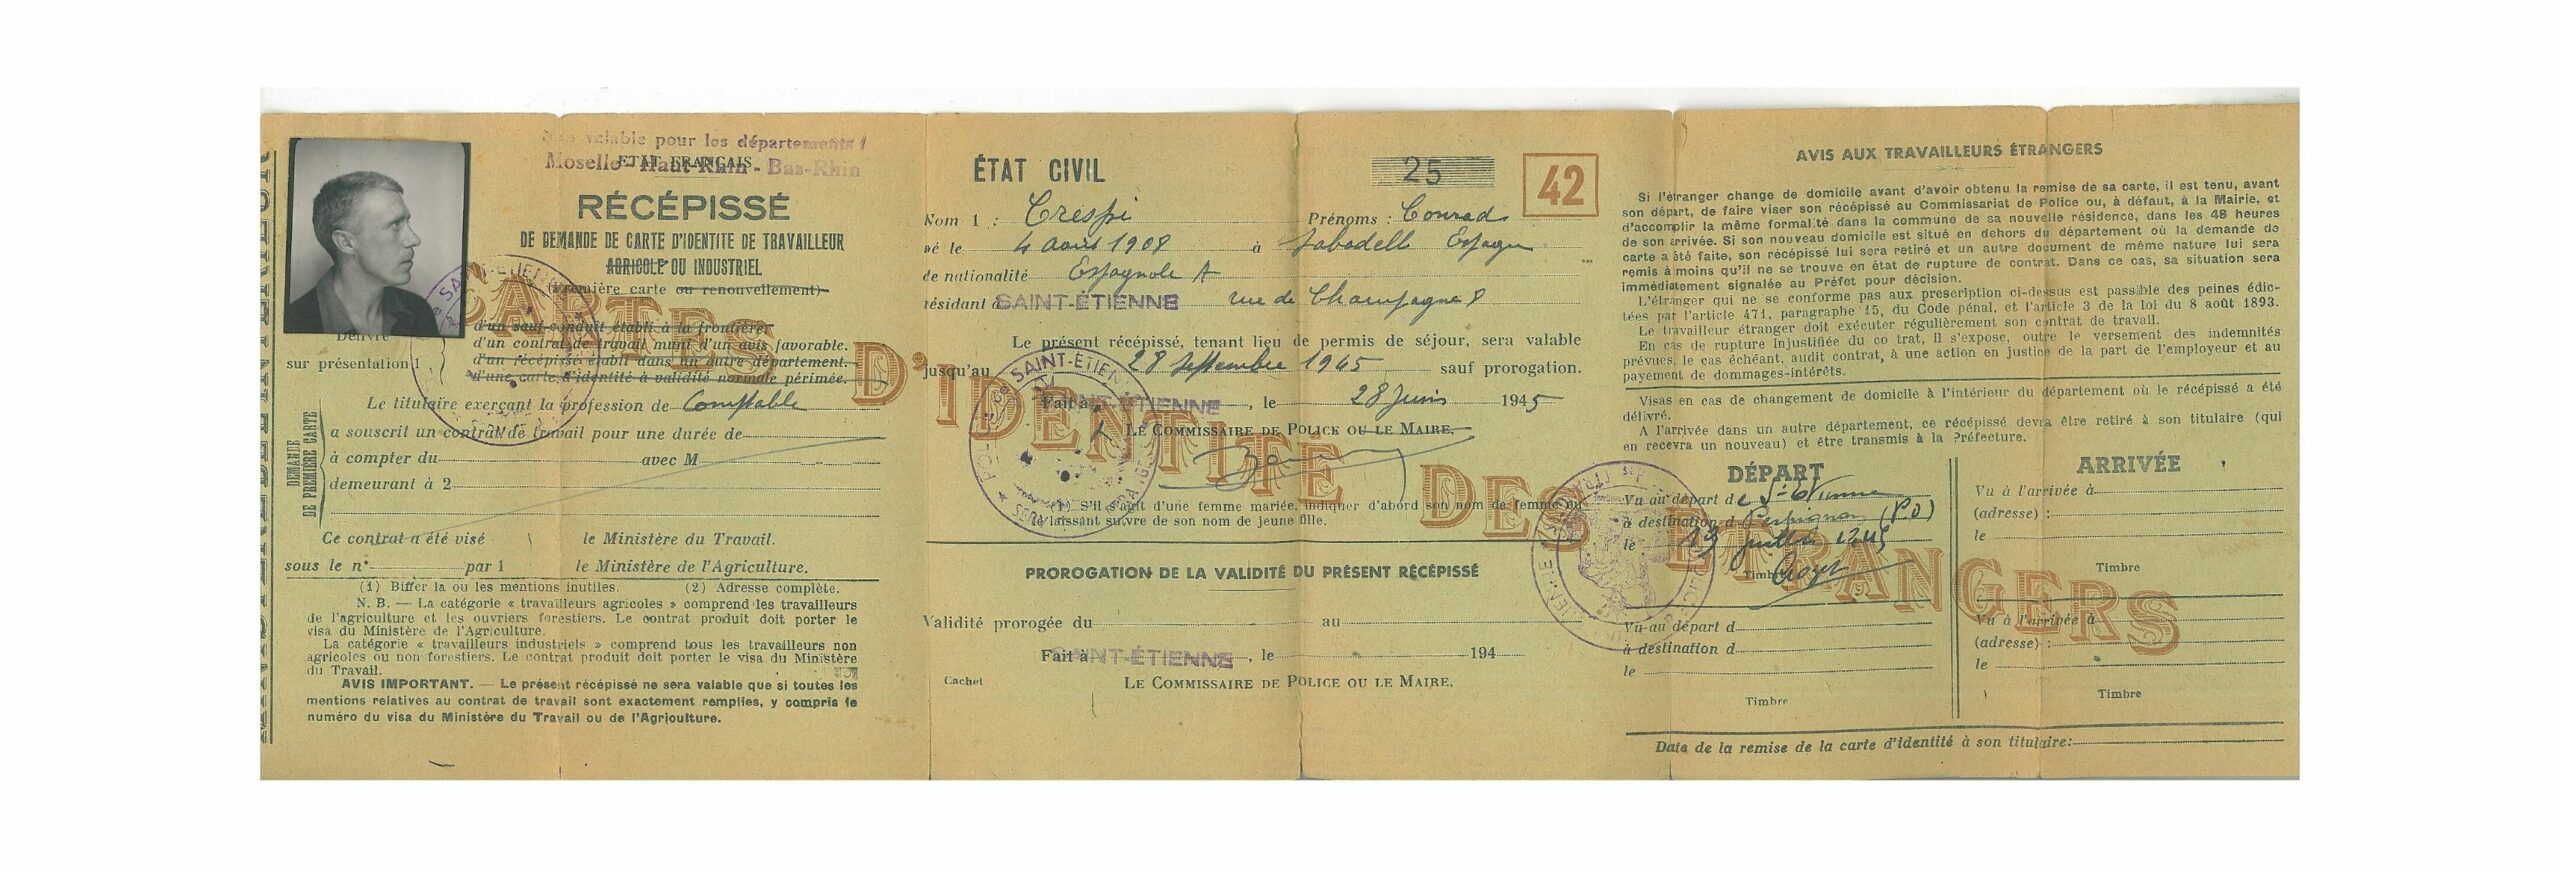 Non valable pour les départements
Moselle - Haut-Rhin - Bas-Rhin
ETAT FRANÇAIS
RÉCÉPISSÉ
DE DEMANDE DE CARTE D'IDENTITE DE TRAVAILLEUR
AGRICOLE OU INDUSTRIEL
(Première carte ou renouvellement)
Délivré
sur présentation 1
d'un sauf-conduit établi à la frontière.
d'un contrat de travail muni d'un avis favorable.
d'un récépissé établi dans un autre département.
d'une carte d'identité à validité normale périmée.
Le titulaire exerçant la profession de Comptable
DEMANDE
DE PREMIÈRE CARTE
a souscrit un contrat de travail pour une durée de
à compter du avec M
demeurant à 2
Ce contrat a été visé le Ministère du Travail.
sous le n° par 1 le Ministère de l'Agriculture.
(1) Biffer la ou les mentions inutiles. (2) Adresse complète.
N. B. — La catégorie « travailleurs agricoles » comprend les travailleurs
de l'agriculture et les ouvriers forestiers. Le contrat produit doit porter le
visa du Ministère de l'Agriculture.
La catégorie « travailleurs industriels » comprend tous les travailleurs non
agricoles ou non forestiers. Le contrat produit doit porter le visa du Ministère
du Travail.
AVIS IMPORTANT. — Le présent récépissé ne sera valable que si toutes les
mentions relatives au contrat de travail sont exactement remplies, y compris le
numéro du visa du Ministère du Travail ou de l'Agriculture.
CARTES D'IDENTITÉ DES ETRANGERS
ÉTAT CIVIL
25
42
Nom 1 : Crespi Prénoms : Conrad
Né le 4 août 1908 à Sabadell Espagne
de nationalité Espagnole A
résidant à SAINT-ÉTIENNE rue de Champagne 8
Le présent récépissé, tenant lieu de permis de séjour, sera valable
jusqu'au 28 Septembre 1945 sauf prorogation.
Fait à SAINT-ÉTIENNE, le 28 Juin 1945
LE COMMISSAIRE DE POLICE OU LE MAIRE.
(1) S'il s'agit d'une femme mariée, indiquer d'abord son nom de femme en
le laissant suivre de son nom de jeune fille.
PROROGATION DE LA VALIDITÉ DU PRÉSENT RÉCÉPISSÉ
Validité prorogée du au
Fait à SAINT-ÉTIENNE, le 194
Cachet LE COMMISSAIRE DE POLICE OU LE MAIRE.
AVIS AUX TRAVAILLEURS ÉTRANGERS
Si l'étranger change de domicile avant d'avoir obtenu la remise de sa carte, il est tenu, avant
son départ, de faire viser son récépissé au Commissariat de Police ou, à défaut, à la Mairie, et
d'accomplir la même formalité dans la commune de sa nouvelle résidence, dans les 48 heures
de son arrivée. Si son nouveau domicile est situé en dehors du département où la demande de
carte a été faite, son récépissé lui sera retiré et un autre document de même nature lui sera
remis à moins qu'il ne se trouve en état de rupture de contrat. Dans ce cas, sa situation sera
immédiatement signalée au Préfet pour décision.
L'étranger qui ne se conforme pas aux prescription ci-dessus est passible des peines édic-
tées par l'article 471, paragraphe 15, du Code pénal, et l'article 3 de la loi du 8 août 1893.
Le travailleur étranger doit exécuter régulièrement son contrat de travail.
En cas de rupture injustifiée du co trat, il s'expose, outre le versement des indemnités
prévues, le cas échéant, audit contrat, à une action en justice de la part de l'employeur et au
payement de dommages-intérêts.
Visas en cas de changement de domicile à l'intérieur du département où le récépissé a été
délivré.
A l'arrivée dans un autre département, ce récépissé devra être retiré à son titulaire (qui
en recevra un nouveau) et être transmis à la Préfecture.
DÉPART
Vu au départ de St-Etienne
à destination d Perpignan (PO)
le 13 juillet 1945
Timbre
Vu au départ d
à destination d
le
Timbre
ARRIVÉE
Vu à l'arrivée à
(adresse) :
le
Timbre
Vu à l'arrivée à
(adresse) :
le
Timbre
Date de la remise de la carte d'identité à son titulaire: